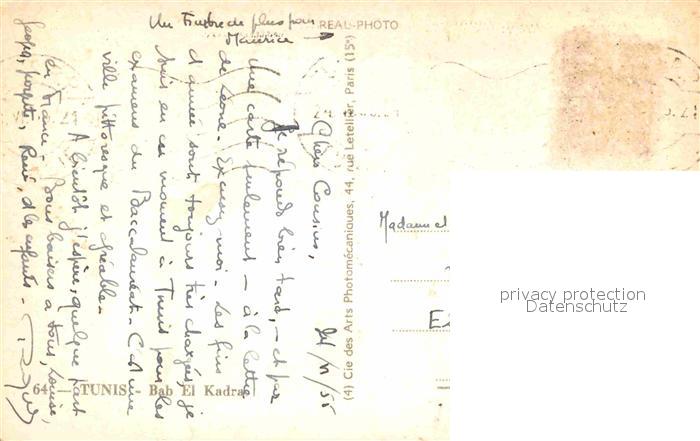 Un Timbre de plus pour
Maurice
REAL-PHOTO
Chers Cousins,
Je réponds bien tard, - et par
une carte seulement - à la lettre
de Leone. Excusez-moi. Les fins
d'année sont toujours très chargées, je
suis en ce moment à Tunis pour les
examens du Baccalauréat. C'est une
ville pittoresque et agréable.
A bientôt j'espère, quelque part
en France. Bons baisers à tous, Louise,
René, et les enfants -
64 - TUNIS - Bab El Kadra
(4) Cie des Arts Photomécaniques, 44, rue Letellier, Paris (15e)
Madame et
privacy protection
Datenschutz